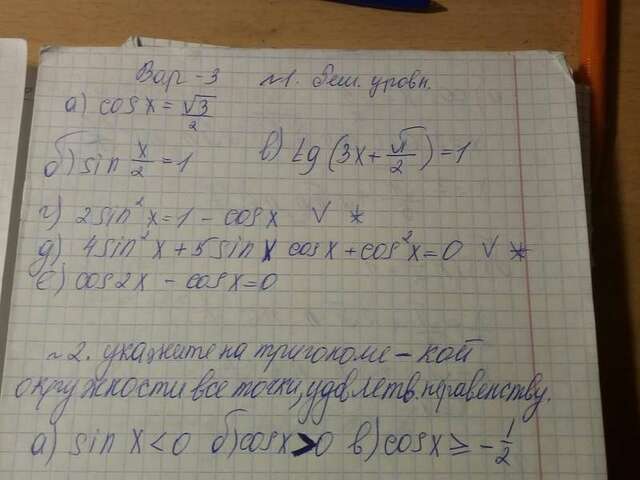 Вар-3 №1. Реш. уровн.
а) cos x = √3/2
б) sin x/2 = 1 в) tg (3x + π/2) = 1
г) 2sin²x = 1 - cosx V *
д) 4sin²x + 5sin x cosx + cos²x = 0 V *
е) cos2x - cosx = 0
№2. укажите на тригономе-кой
окружности все точки, удовлетв. неравенству.
а) sin x < 0 б) cosx > 0 в) cosx ≥ -1/2